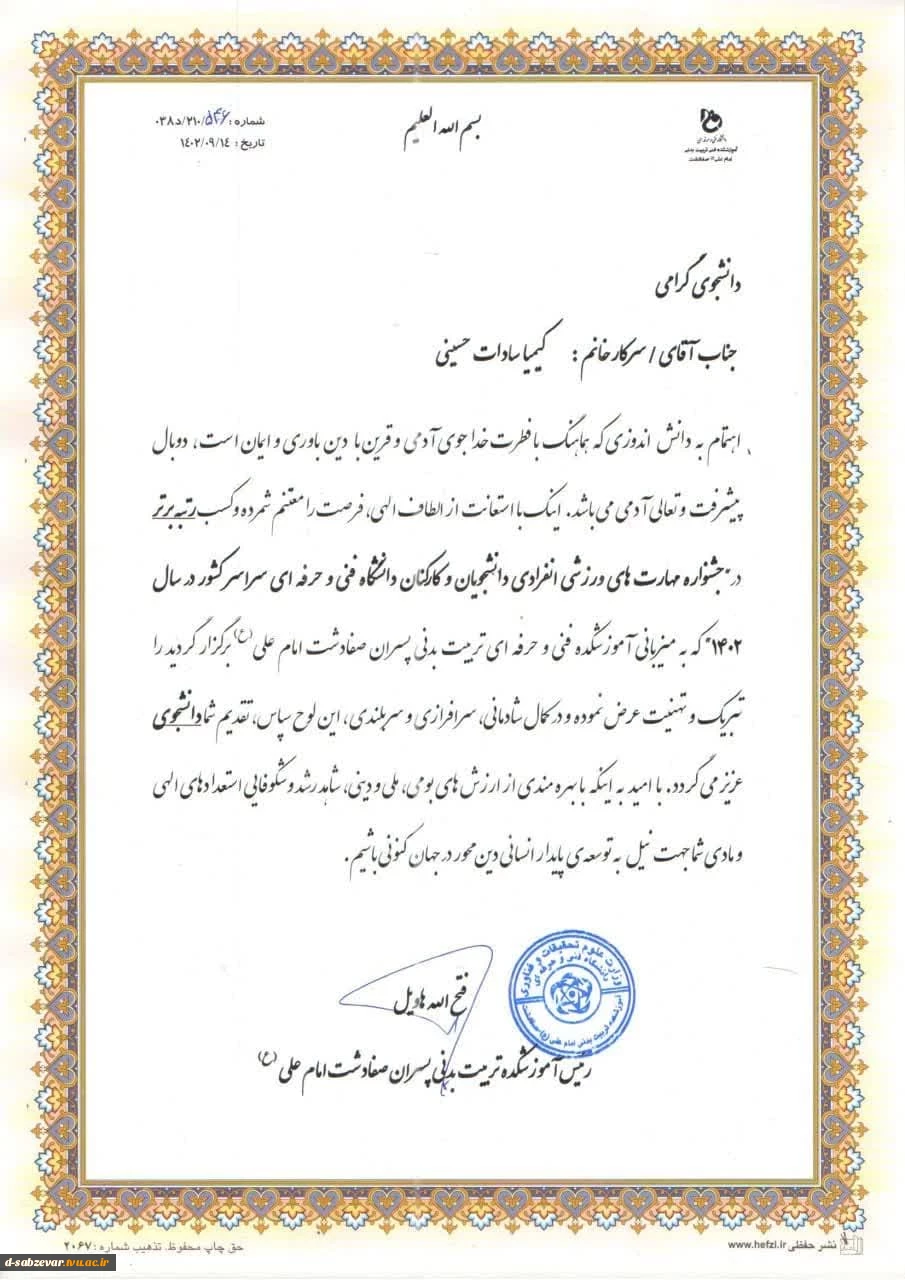 بسم الله العلیم
شماره: ۵۴۶/۲۱۰/د۰۳۸
تاریخ: ۱۴۰۲/۰۹/۱۴
آموزشکده فنی تربیت بدنی
امام علی (ع) صفادشت
دانشجوی گرامی
جناب آقای / سرکار خانم: کیمیا سادات حسینی
اهتمام به دانش اندوزی که هماهنگ با فطرت خداجوی آدمی و قرین با دین باوری و ایمان است، دو بال
پیشرفت و تعالی آدمی می باشد. اینک با استعانت از الطاف الهی، فرصت را مغتنم شمرده و کسب رتبه برتر
در "جشنواره مهارت های ورزشی انفرادی دانشجویان و کارکنان دانشگاه فنی و حرفه ای سراسر کشور در سال
۱۴۰۲" که به میزبانی آموزشکده فنی و حرفه ای تربیت بدنی پسران صفادشت امام علی (ع) برگزار گردید را
تبریک و تهنیت عرض نموده و در کمال شادمانی، سرافرازی و سربلندی، این لوح سپاس، تقدیم شما دانشجوی
عزیز می گردد. با امید به اینکه با بهره مندی از ارزش های بومی، ملی و دینی، شاهد رشد و شکوفایی استعدادهای الهی
و مادی شما جهت نیل به توسعه ی پایدار انسانی دین محور در جهان کنونی باشیم.
وزارت علوم تحقیقات و فناوری
دانشگاه فنی و حرفه ای
آموزشکده تربیت بدنی امام علی (ع) صفادشت
فتح الله هاویل
رئیس آموزشکده تربیت بدنی پسران صفادشت امام علی (ع)
نشر حفظی www.hefzi.ir
حق چاپ محفوظ. تذهیب شماره: ۲۰۶۷
d-sabzevar.tvu.ac.ir